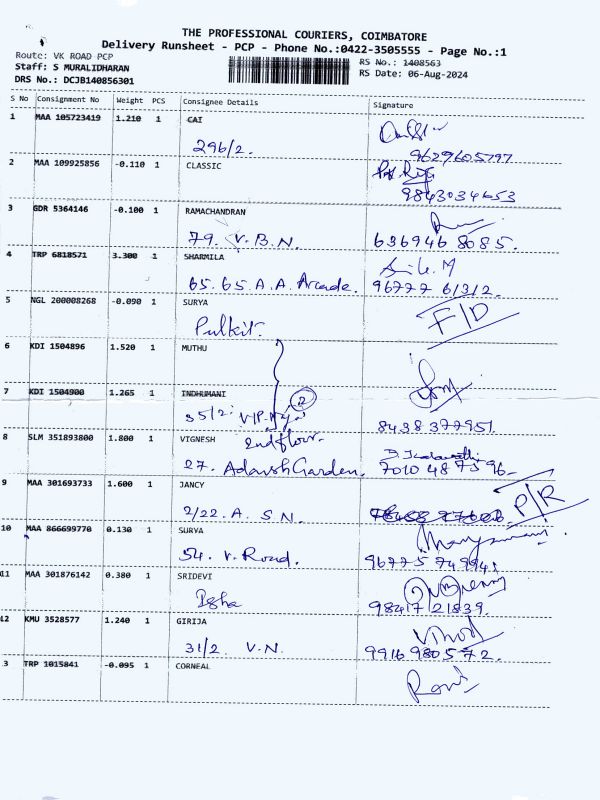 THE PROFESSIONAL COURIERS, COIMBATORE
Delivery Runsheet - PCP - Phone No.:0422-3505555 - Page No.:1
Route: VK ROAD PCP
Staff: S MURALIDHARAN
DRS No.: DCJB140856301
RS No.: 1408563
RS Date: 06-Aug-2024
S No Consignment No Weight PCS Consignee Details Signature
1 MAA 105723419 1.210 1 CAI
296/2. 9629605797
2 MAA 109925856 -0.110 1 CLASSIC
9843034653
3 GDR 5364146 -0.100 1 RAMACHANDRAN
79. V.B.N. 636946 8085.
4 TRP 6818571 3.300 1 SHARMILA
65. 65. A.A. Arcade. 96777 61312.
5 NGL 200008268 -0.090 1 SURYA F/D
Pulkit.
6 KDI 1504896 1.520 1 MUTHU
7 KDI 1504900 1.265 1 INDHUMANI
35/2: V.P. 2 8438 377951.
8 SLM 351893800 1.800 1 VIGNESH 2nd floor.
27. Adarsh Garden. 7010 487596
9 MAA 301693733 1.600 1 JANCY P/R
2/22. A. S.N.
10 MAA 866699770 0.130 1 SURYA
54. V. Road. 96775 74994
11 MAA 301876142 0.380 1 SRIDEVI
Isha 98417 21839.
12 KMU 3528577 1.240 1 GIRIJA Vinod
31/2. V.N. 9916 980572.
3 TRP 1015841 -0.095 1 CORNEAL